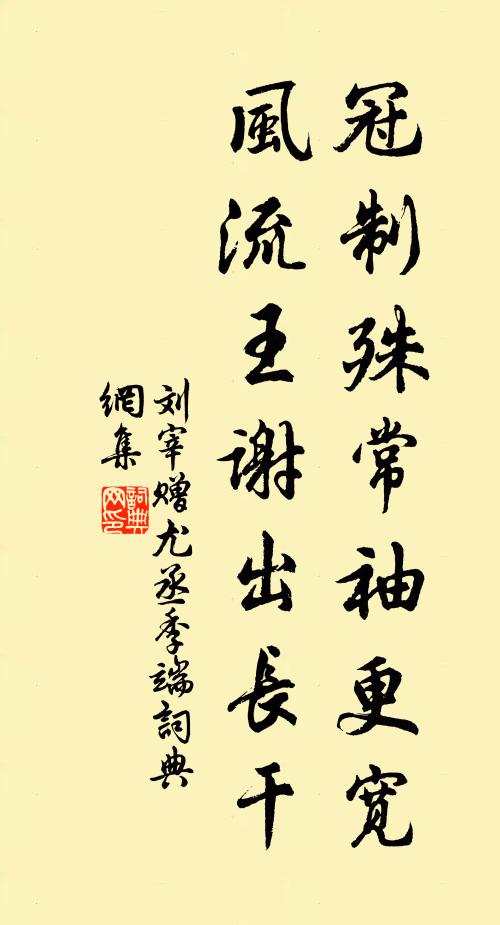 冠制殊常袖更寬
風流王謝出長干
刘宰赠尤丞季端詞典
網集
詞典
网印